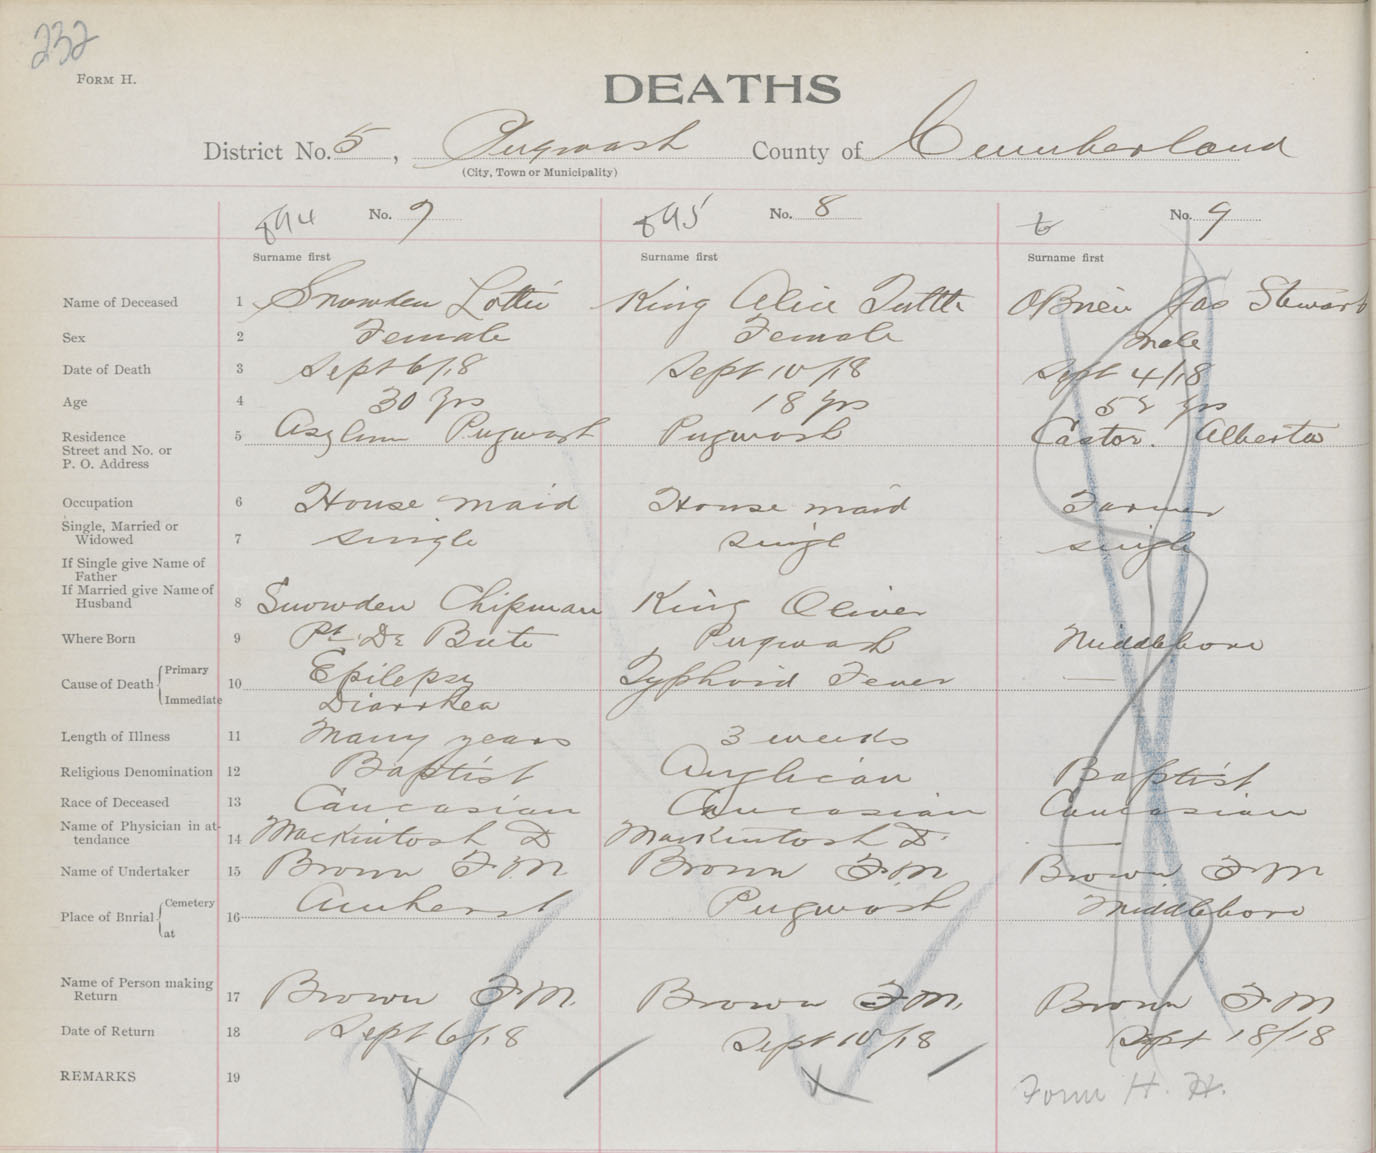 232
FORM H.
DEATHS
District No. 5, Pugwash County of Cumberland
(City, Town or Municipality)
894 No. 7 895 No. 8 No. 9
Surname first Surname first Surname first
Name of Deceased 1 Snowden Lottie King Alice Tuttle O'Brien Jas Stewart
Sex 2 Female Female Male
Date of Death 3 Sept 6/18 Sept 10/18 Sept 4/18
Age 4 30 yrs 18 yrs 52 yrs
Residence 5 Asylum Pugwash Pugwash Castor. Alberta
Street and No. or
P. O. Address
Occupation 6 House maid House maid Farmer
Single, Married or
Widowed 7 single singl single
If Single give Name of
Father
If Married give Name of
Husband 8 Snowden Chipman King Oliver
Where Born 9 Pt. De Bute Pugwash Middleboro
Cause of Death Primary 10 Epilepsy Typhoid Fever —
Immediate Diarrhea
Length of Illness 11 Many years 3 weeks
Religious Denomination 12 Baptist Anglican Baptist
Race of Deceased 13 Caucasian Caucasian Caucasian
Name of Physician in at-
tendance 14 Mackintosh D Mackintosh D. —
Name of Undertaker 15 Brown F.M. Brown F.M. Brown F M
Place of Burial Cemetery 16 Amherst Pugwash Middleboro
at
Name of Person making
Return 17 Brown F.M. Brown F.M. Brown F M
Date of Return 18 Sept 6/18 Sept 10/18 Sept 18/18
REMARKS 19 Form H. H.